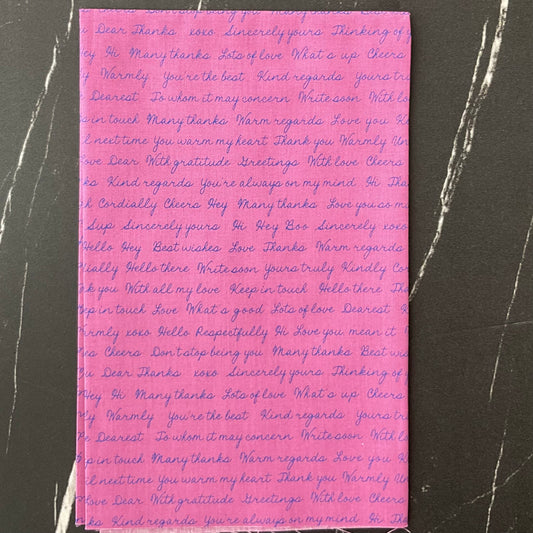 Dear Thanks xoxo Sincerely yours Thinking of y
Hey Hi Many thanks Lots of love What's up Cheers
ly Warmly You're the best Kind regards Yours tru
Dearest To whom it may concern Write soon With lo
in touch Many thanks Warm regards Love you
l next time You warm my heart Thank you Warmly Un
Love Dear With gratitude Greetings With love Cheers
ks Kind regards You're always on my mind Hi Tha
Cordially Cheers Hey Many thanks Love you so m
Sup Sincerely yours Hi Hey Boo Sincerely xoxo
Hello Hey Best wishes Love Thanks Warm regards
dially Hello there Write soon Yours truly Kindly Cor
k you With all my love Keep in touch Hello there Th
ep in touch Love What's good Lots of love Dearest
rmly xoxo Hello Respectfully Hi Love you mean it
Cheers Don't stop being you Many thanks Best wis
Dear Thanks xoxo Sincerely yours Thinking of y
Hey Hi Many thanks Lots of love What's up Cheers
ly Warmly You're the best Kind regards Yours tr
Dearest To whom it may concern Write soon With l
p in touch Many thanks Warm regards Love you
il next time You warm my heart Thank you Warmly Un
Love Dear With gratitude Greetings With love Cheers
ks Kind regards You're always on my mind Hi Tha